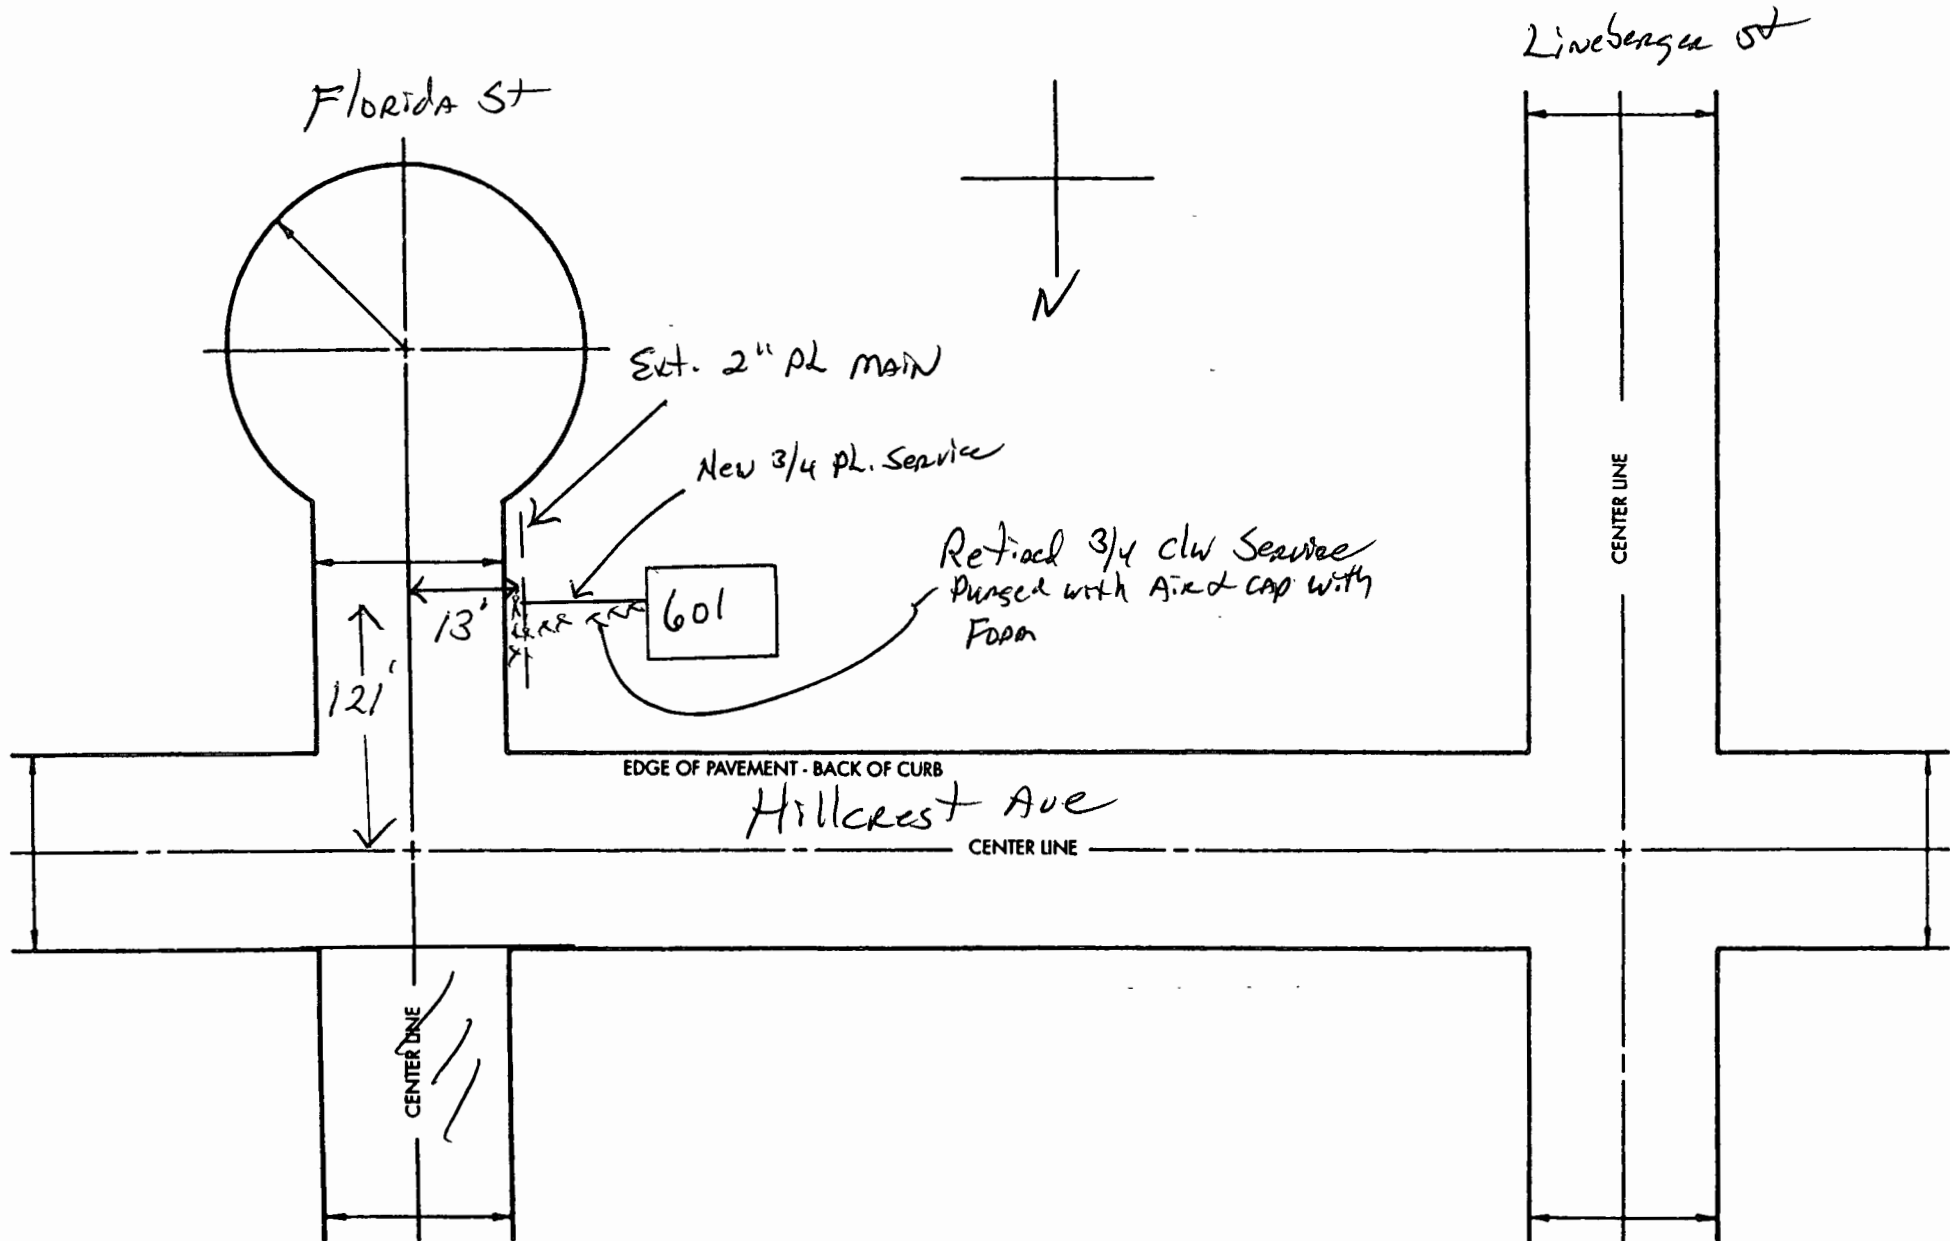 Lineberger St
Florida St
N
Ext. 2" PL MAIN
New 3/4 PL. Service
Retired 3/4 clw Service
Purged with Air & CAP with
Foam
601
13'
121'
CENTER LINE
EDGE OF PAVEMENT - BACK OF CURB
Hillcrest Ave
CENTER LINE
CENTER LINE